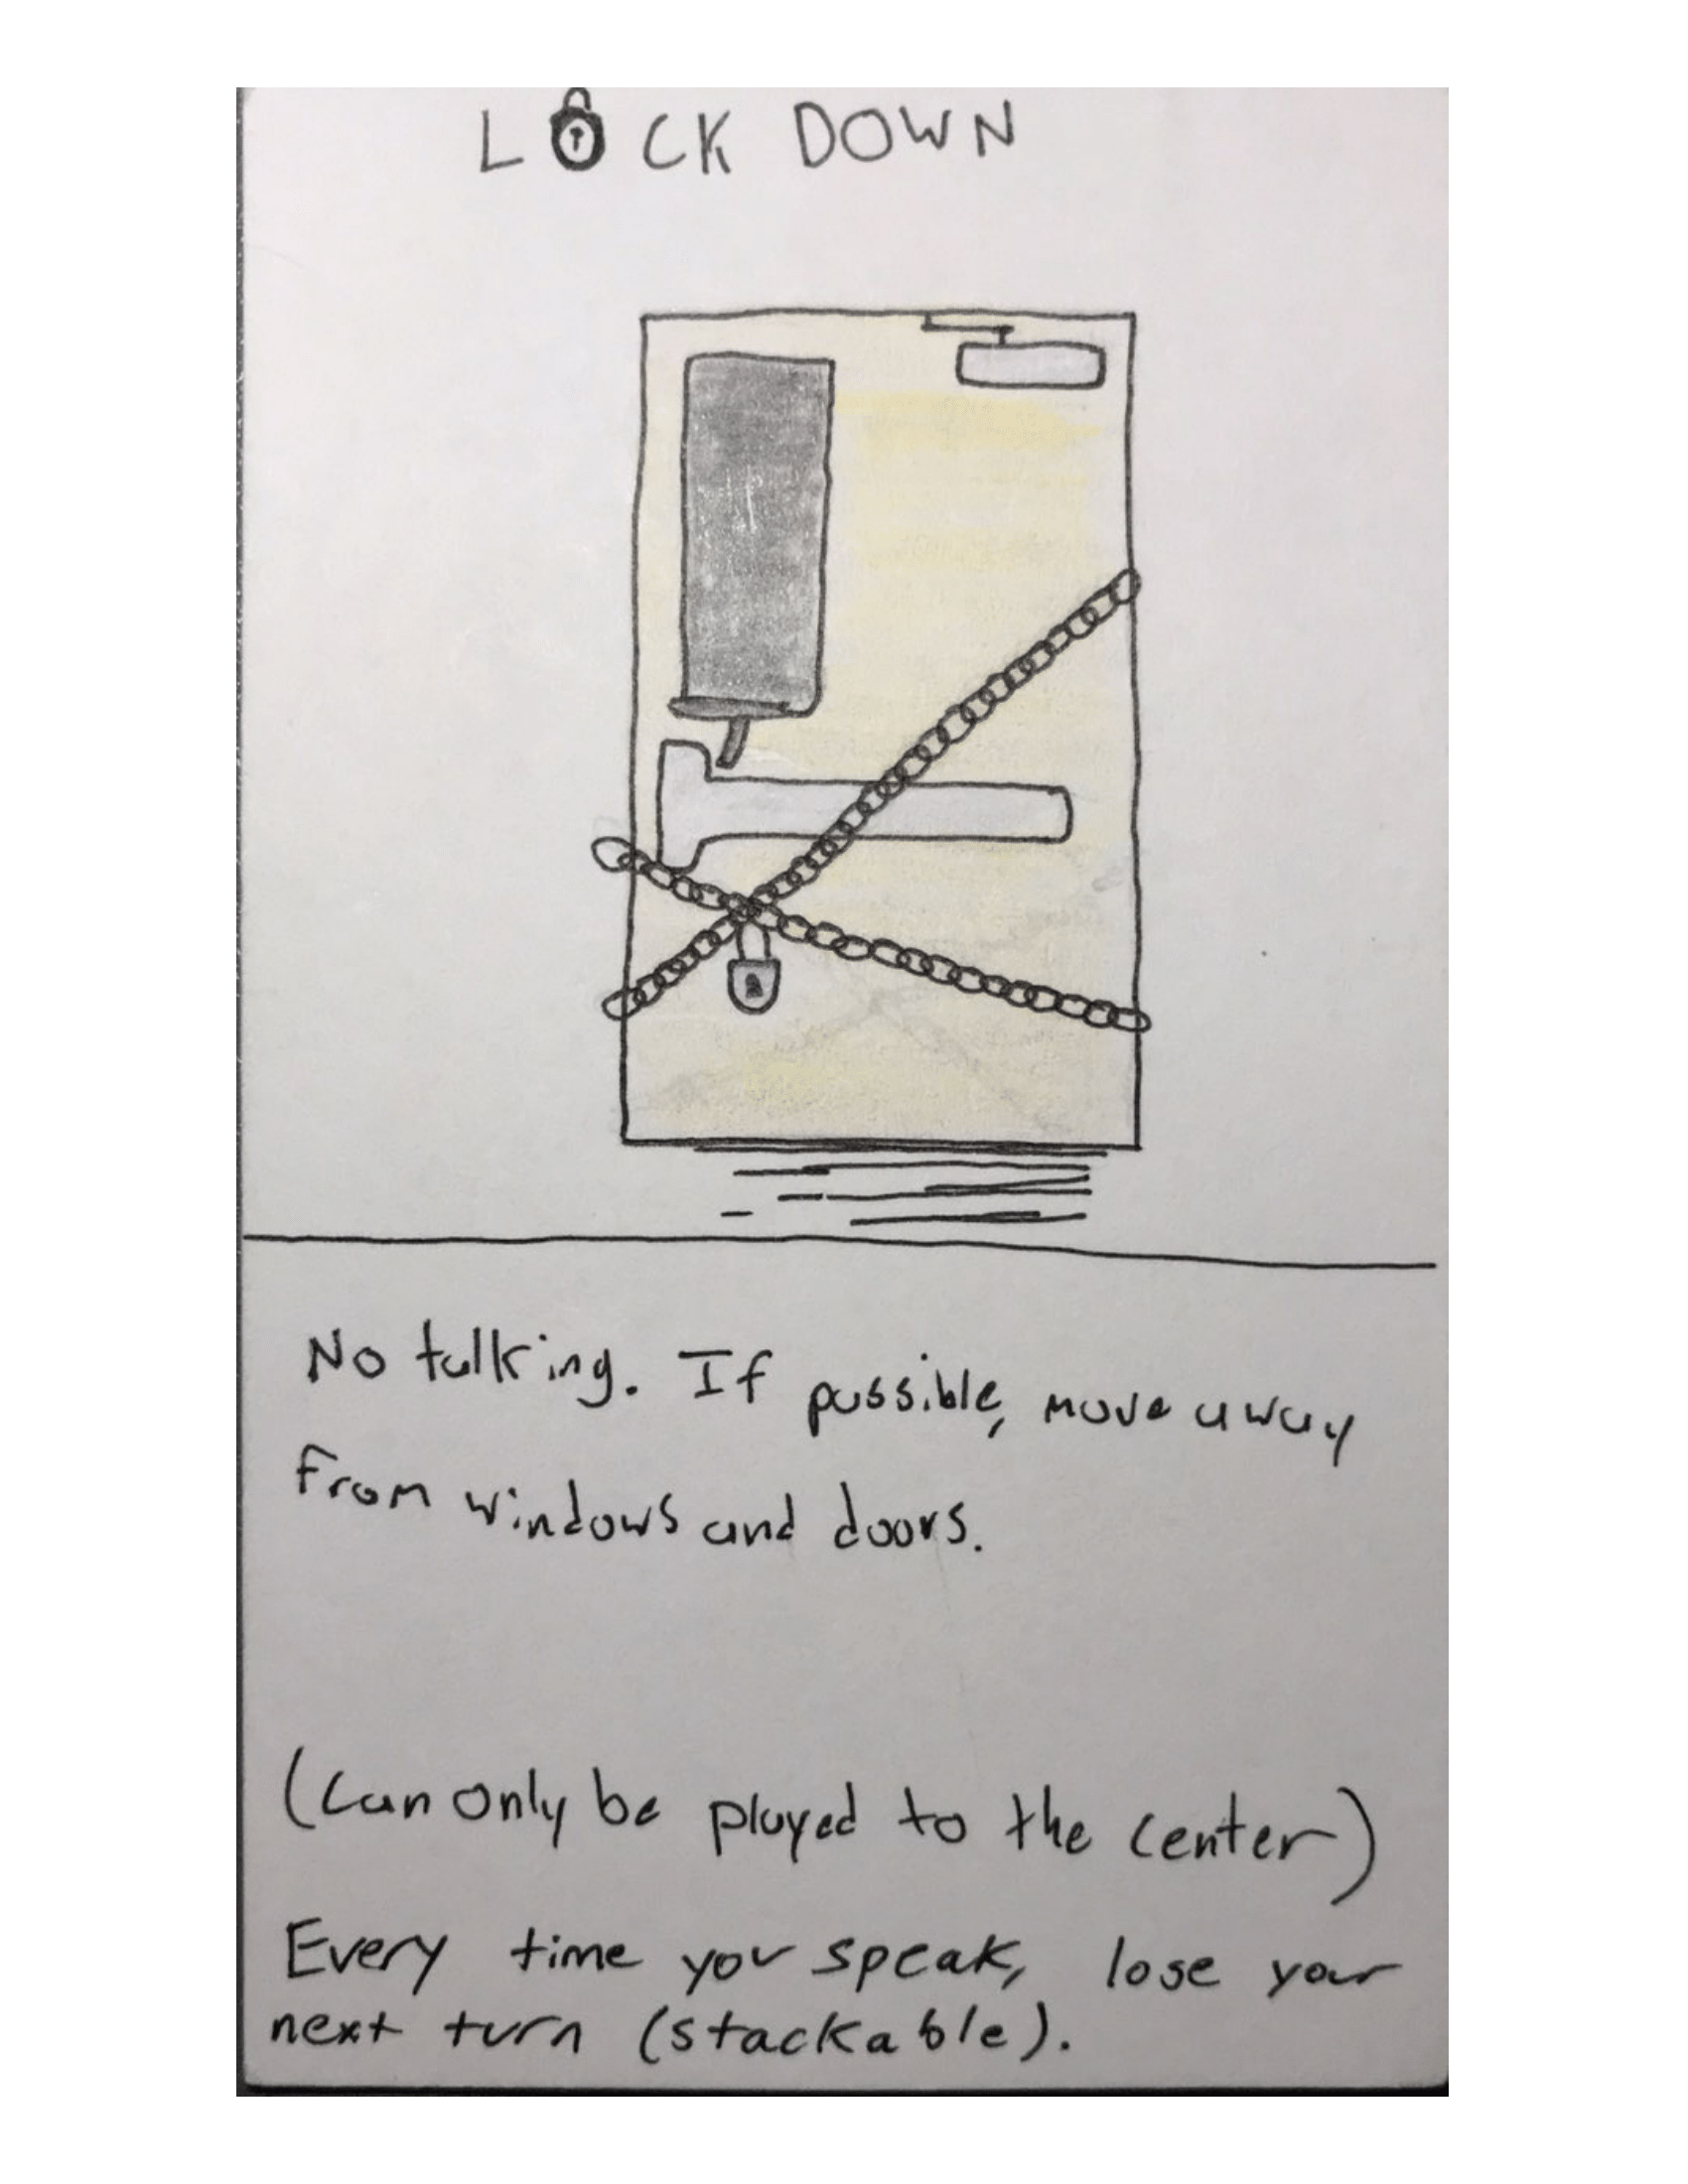 LOCK DOWN
No talking. If possible, move away
from windows and doors.
(Can only be played to the center)
Every time you speak, lose your
next turn (stackable).